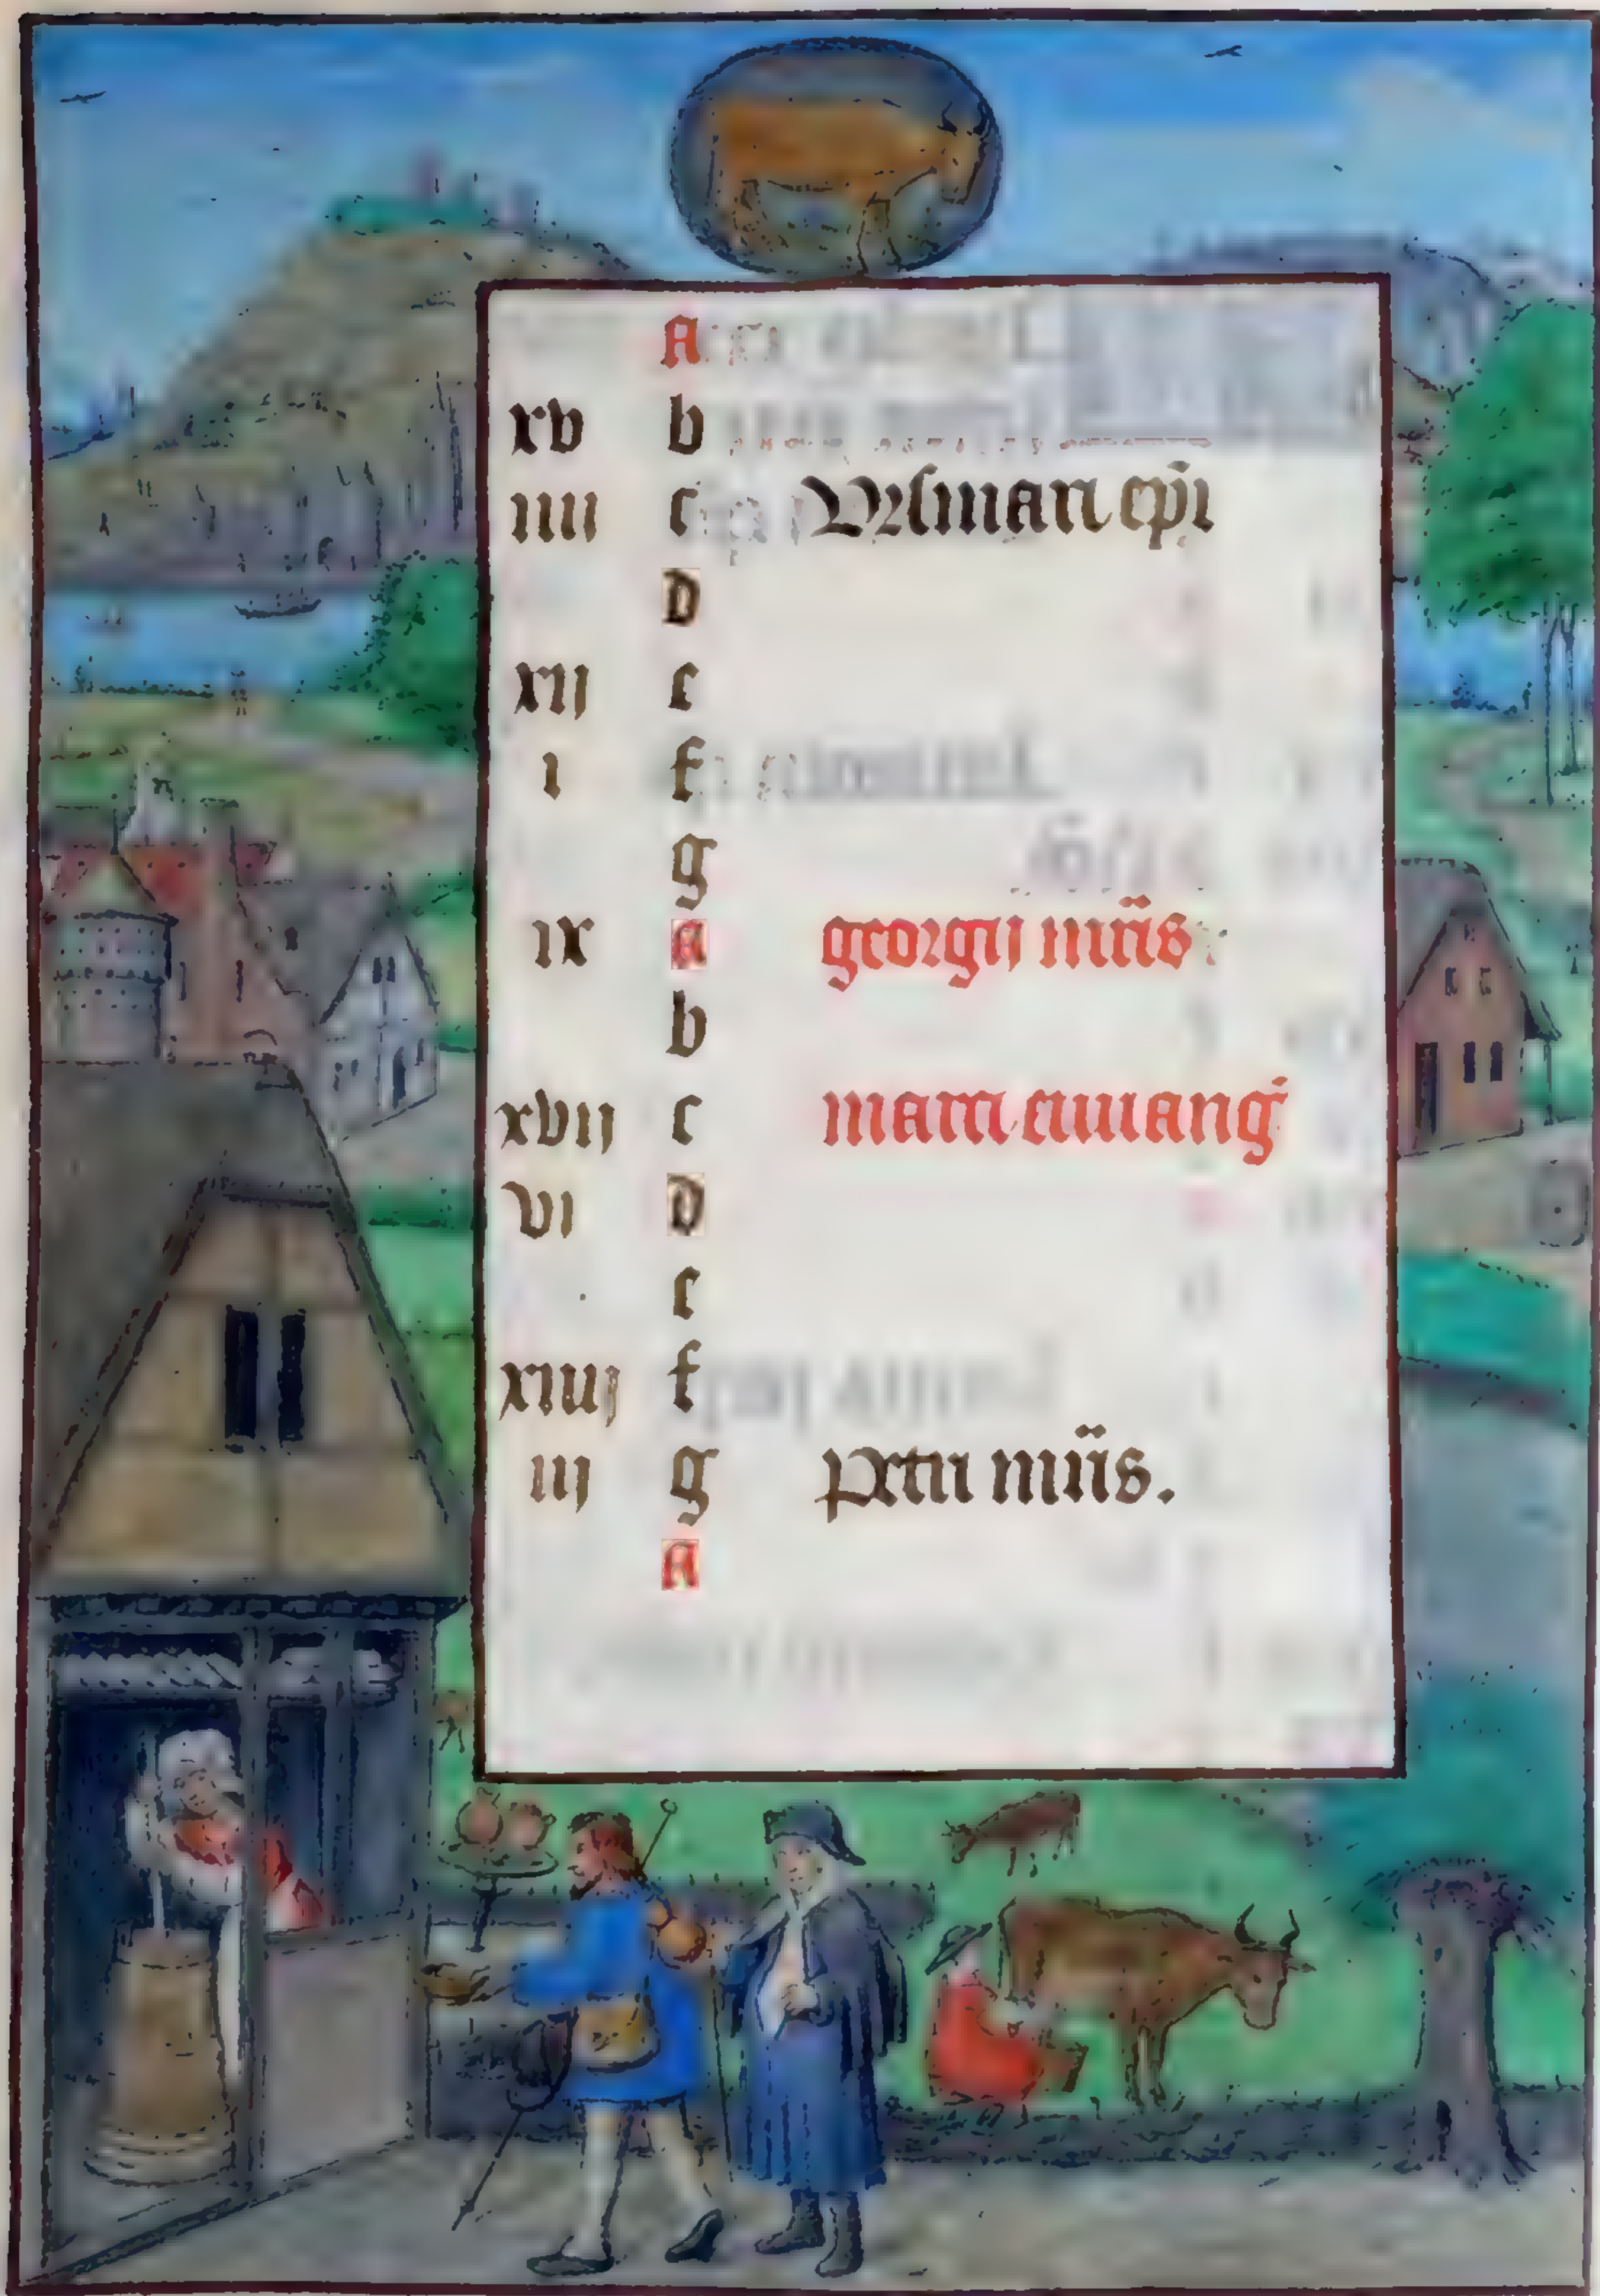 A
xv b
iiii c Vrsmari epi
D
xij e
i f
g
ix A georgij mris
b
xvij c marci euuang
vi D
e
xiiij f
iij g petri mris.
A